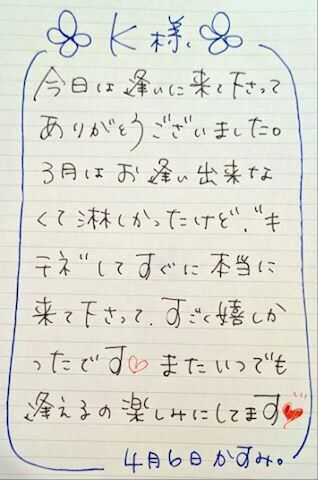 K様、
今日は逢いに来て下さって
ありがとうございました。
3月はお逢い出来な
くて淋しかったけど、"キ
テネ"してすぐに本当に
来て下さって、すごく嬉しか
ったです♡またいつでも
逢えるの楽しみにしてます♥
4月6日かすみ。